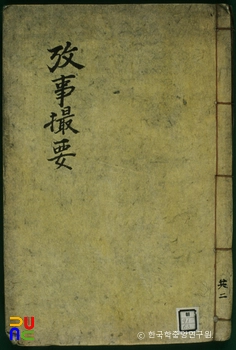 攷事撮要
共二
© 한국학중앙연구원